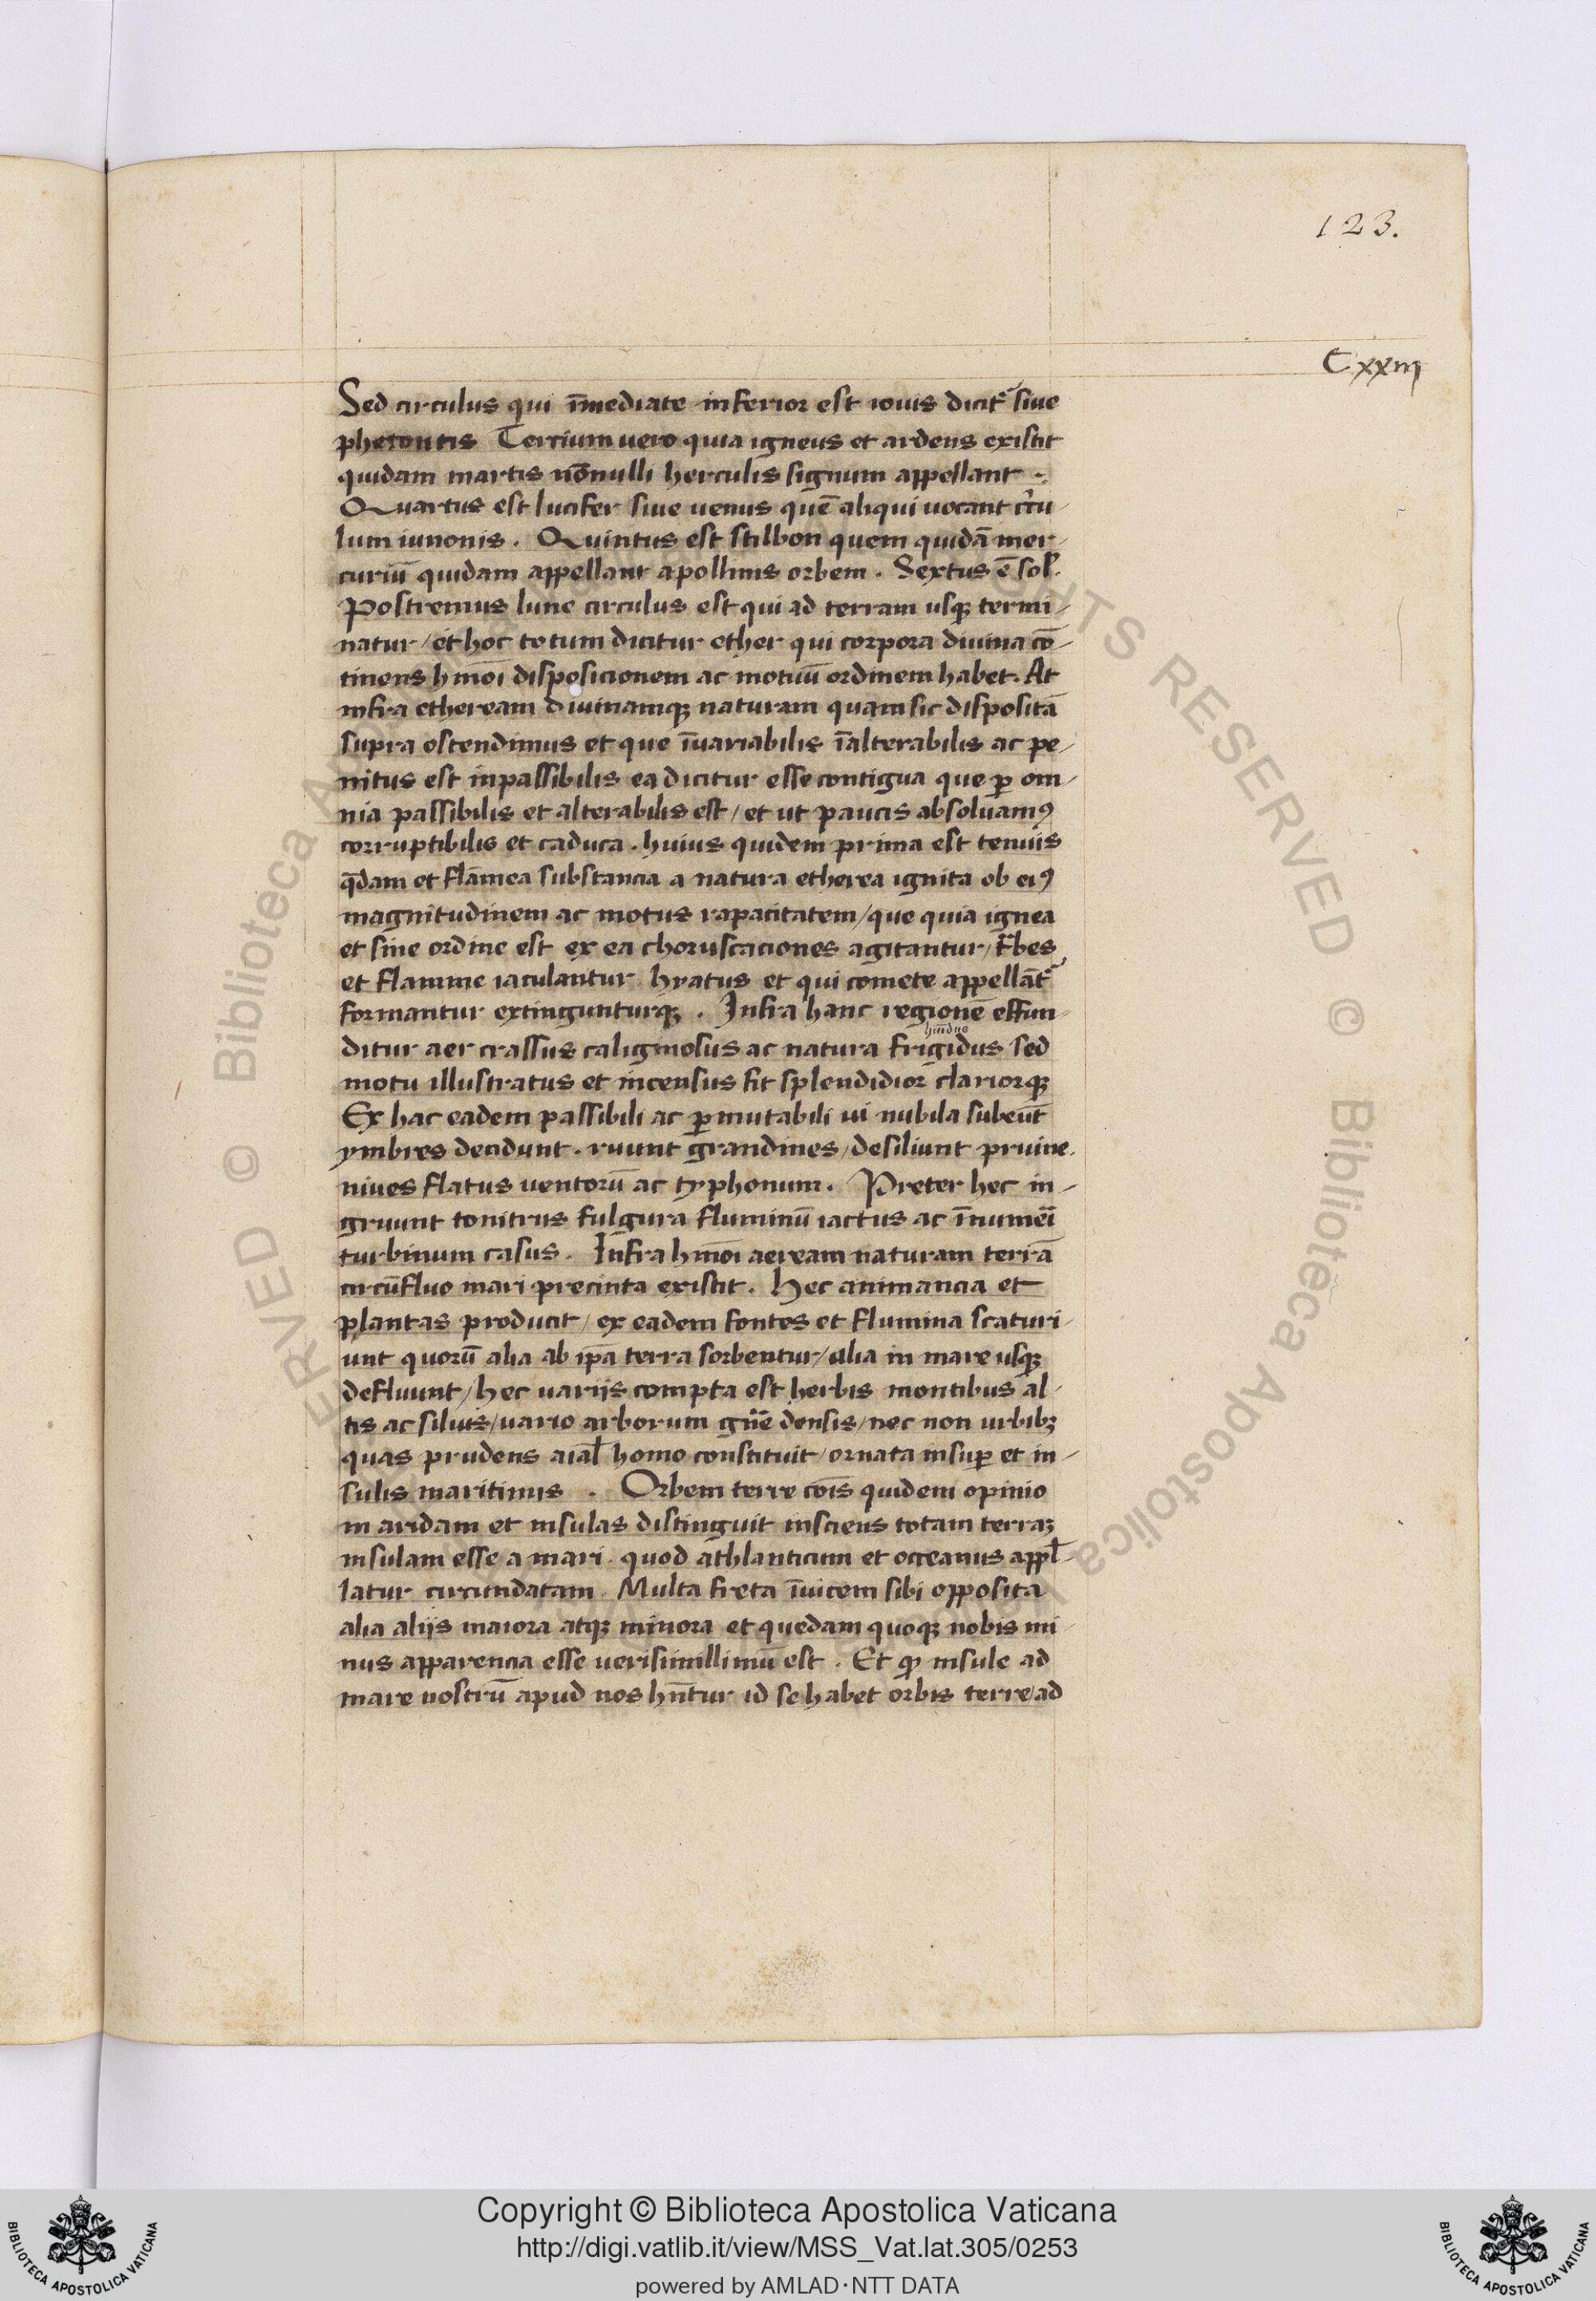 123.
Cxxiij
Sed circulus qui īmediate inferior est iouis dicit᷑ siue
phetontis Tercium uero quia igneus et ardens existit
quidam martis nōnulli herculis signum appellant .
Quartus est lucifer siue uenus quē aliqui uocant circu-
lum iunonis . Quintus est stilbon quem quidā mer-
curiū quidam appellant apollinis orbem . Sextus ē sol̃.
Postremus lune circulus est qui ad terram usqꝫ termi-
natur / et hoc totum dicitur ether qui corpora diuina cō-
tinens hmōi disposicionem ac motuū ordinem habet . At
infra etheream diuinamqꝫ naturam quam sic dispositā
supra ostendimus et que īuariabilis īalterabilis ac pe-
nitus est inpassibilis ea dicitur esse contigua que ꝑ om-
nia passibilis et alterabilis est / et ut paucis absoluamꝰ
corruptibilis et caduca . huius quidem prima est tenuis
q̄dam et flāmea substancia a natura etherea ignita ob eiꝰ
magnitudinem ac motus rapacitatem / que quia ignea
et sine ordine est ex ea choruscaciones agitantur / t᷑bes
et flamme iaculantur hyatus et qui comete appellāt᷑
formantur extingunturqꝫ . Infra hanc regionē effun-
humidus
ditur aer crassus caliginosus ac natura frigidus sed
motu illustratus et incensus fit splendidior clariorqꝫ
Ex hac eadem passibili ac ꝑmutabili ui nubila subeūt
ymbres decidunt . ruunt grandines / desiliunt pruine .
niues flatus uentorū ac typhonum . Preter hec in-
gruunt tonitrus fulgura fluminū iactus ac īnumeī
turbinum casus . Infra hmōi aeream naturam terrā
circūfluo mari precinta existit . Hec animancia et
plantas producit / ex eadem fontes et flumina scaturi-
unt quorū alia ab ip̄a terra sorbentur / alia in mare usqꝫ
defluunt / hec uariis compta est herbis montibus al-
tis ac siluis / uario arborum gn̄e densis / nec non urbibꝫ
quas prudens aīal homo constituit / ornata insuꝑ et in-
sulis maritimis . Orbem terre cōis quidem opinio
in aridam et insulas distinguit insciens totam terraꝫ
insulam esse a mari quod athlanticum et occeanus appl̄-
latur circundatam . Multa freta īuicem sibi opposita
alia aliis maiora atqꝫ minora et quedam quoqꝫ nobis mi-
nus apparencia esse uerisimillimū est . Et qͦ insule ad
mare nostrū apud nos hn̄tur id se habet orbis terre / ad
Copyright © Biblioteca Apostolica Vaticana
http://digi.vatlib.it/view/MSS_Vat.lat.305/0253
powered by AMLAD·NTT DATA